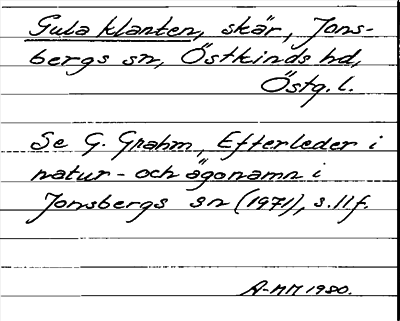 Gula klanten, skär, Jons-
bergs sn, Östkinds hd,
Östg. l.
Se G. Grahm, Efterleder i
natur- och ägonamn i
Jonsbergs sn (1971), s. 11 f.
A-MM 1980.